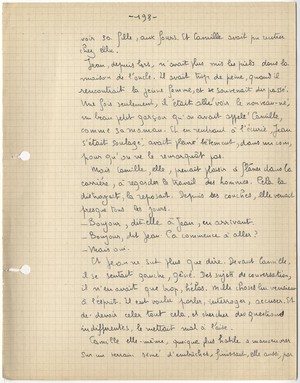 -198-
voir sa fille, aux fours. Et Camille avait pu rentrer
chez elle.
Jean, depuis lors, n'avait plus mis les pieds dans la
maison de l'oncle. Il avait trop de peine, quand il
rencontrait la jeune femme, et se souvenait du passé.
Une fois seulement, il était allé voir le nouveau-né,
un beau petit garçon qu'on avait appelé Camille,
comme sa maman. Et en rentrant à l'écurie, Jean
s'était soulagé, avait pleuré lentement, dans un coin,
pour qu'on ne le remarquât pas.
Mais Camille, elle, prenait plaisir à flâner dans la
carrière, à regarder le travail des hommes. Cela la
distrayait, la reposait. Depuis ses couches, elle venait
presque tous les jours.
- Bonjour, dit-elle à Jean, en arrivant.
- Bonjour, dit Jean. Ça commence à aller ?
- Mais oui.
Et Jean ne sut plus que dire. Devant Camille,
il se sentait gauche, gêné. Des sujets de conversation,
il n'en avait que trop, hélas. Mille choses lui venaient
à l'esprit. Il eut voulu parler, interroger, accuser. Et
de devoir celer tout cela, et chercher des questions
indifférentes, le mettait mal à l'aise.
Camille elle-même, quoique plus habile à manoeuvrer
sur un terrain semé d'embûches, finissait, elle aussi, par